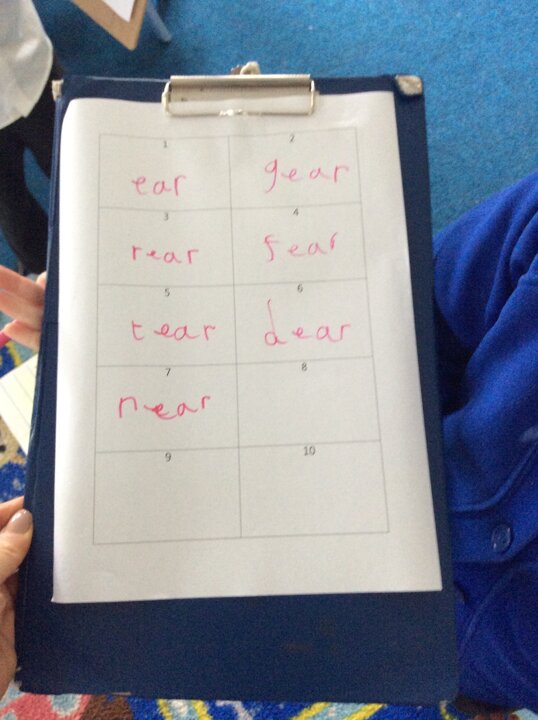 1 2
ear gear
3 4
rear fear
5 6
tear dear
7 8
near
9 10